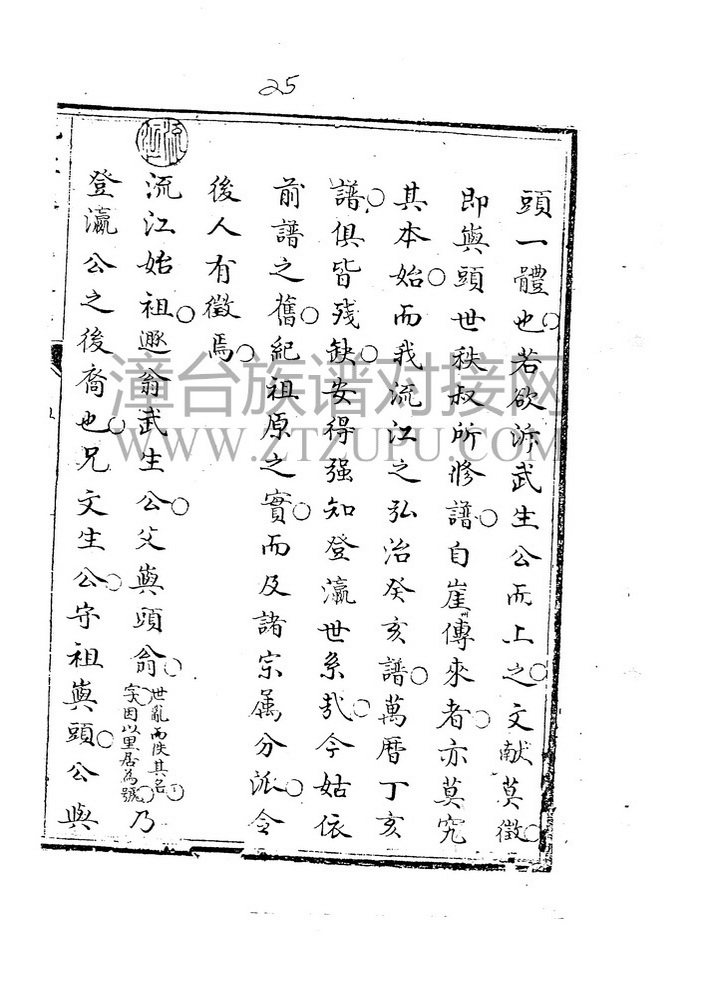 25
頭一體也若欲泝武生公而上之文献莫徵
即輿頭世秩叔所修譜自崖州傳來者亦莫究
其本始而我流江之弘治癸亥譜萬曆丁亥
譜俱皆残缺安得强知登瀛世系㢤今姑依
前譜之舊紀祖原之實而及諸宗属分派令
後人有徵焉
流江始祖遯翁武生公父輿頭翁世亂而佚其名字因以里居為號乃
登瀛公之後裔也兄文生公守祖輿頭公與
漳台族谱对接网
WWW.ZTZUPU.COM